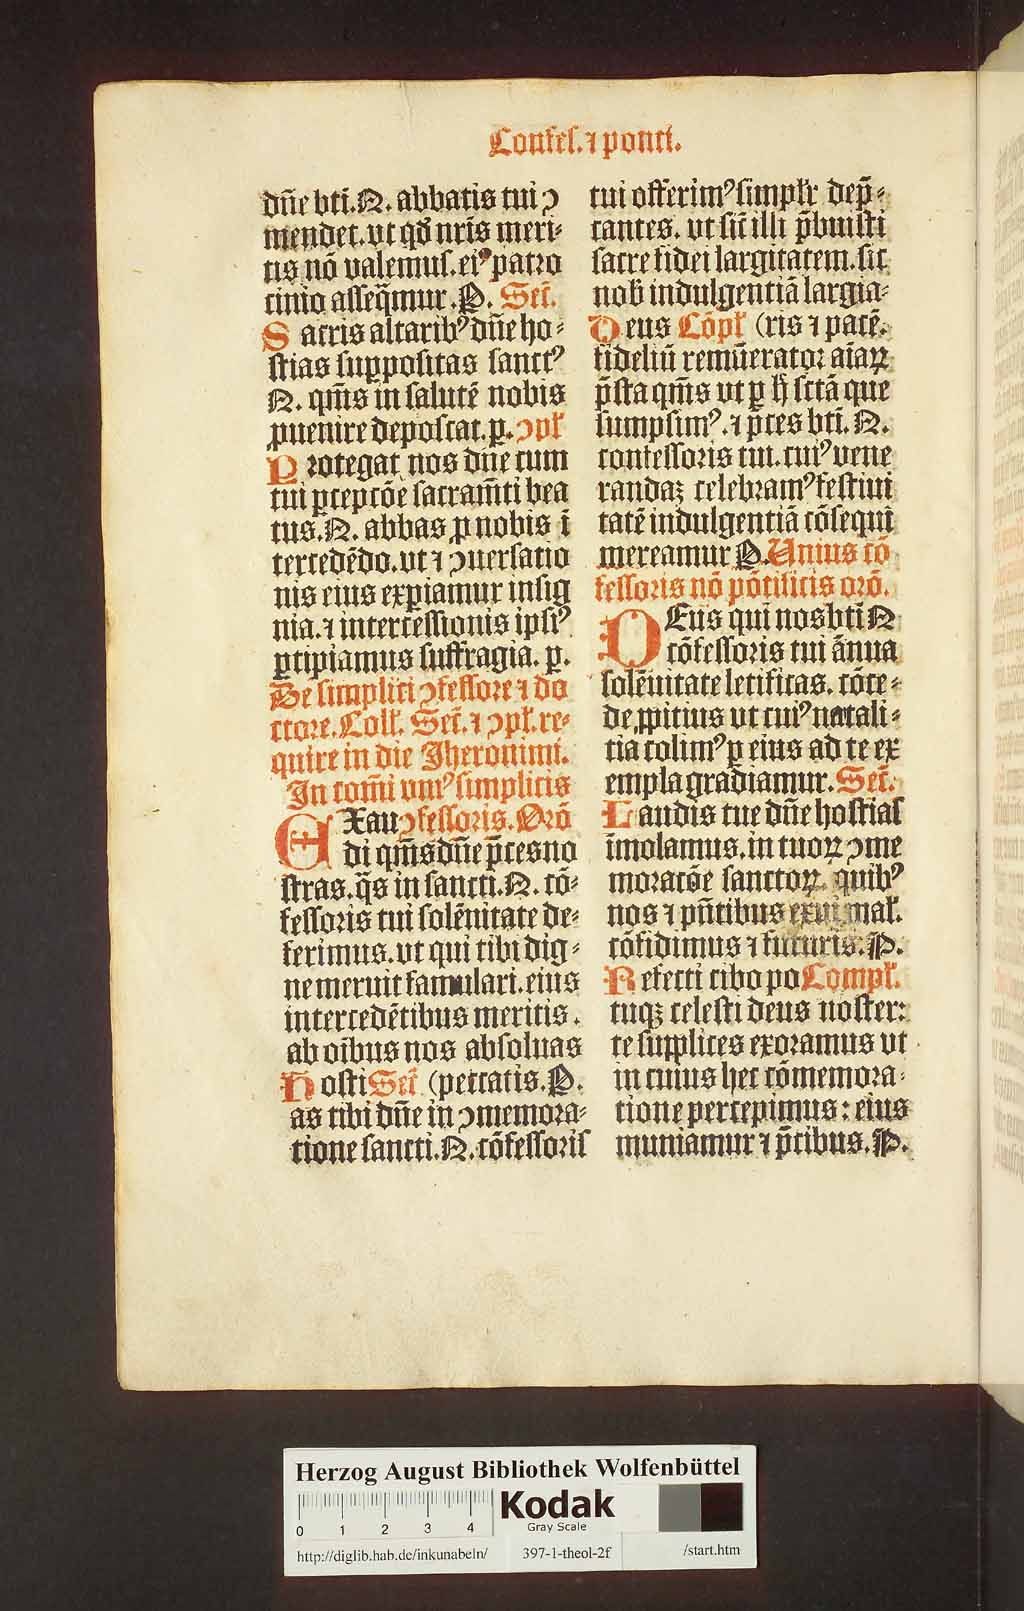 Confes. ⁊ ponti.
dn̄e bti̅. N. abbatis tui ↄ
mendet. vt qd̕ nr̄is meri⸗
tis nō valemus. ei⁹ patro
cinio asseq̄mur. P. Sec̄.
Sacris altarib⁹ dn̄e ho⸗
stias suppositas sanct⁹
N. qm̄s in salutē nobis
ꝓuenire deposcat. ꝑ. ↄpl̕
Protegat nos dn̄e cum
tui ꝑcepcōe̅ sacram̄ti bea
tus. N. abbas ꝓ nobis ī
tercedēdo. vt ⁊ ↄuersatio
nis eius expiamur insig
nia. ⁊ intercessionis ipsi⁹
ꝑcipiamus suffragia. ꝑ.
De simplici ↄfessore ⁊ do
ctore. Coll̕. Sec̄. ⁊ ↄpl̕. re⸗
quire in die Jheronimi.
In com̄i vni⁹ simplicis
EXau ↄfessoris. Orō
di qm̄s dn̄e p̄ces no
stras. q̄s in sancti. N. cō⸗
fessoris tui solēnitate de⸗
ferimus. vt qui tibi dig⸗
ne meruit famulari. eius
intercedētibus meritis.
ab oībus nos absoluas
Hosti Sec̄ (peccatis. P.
as tibi dn̄e in ↄmemora⸗
tione sancti. N. cōfessoris
tui offerim⁹ simpl̕r dep̄⸗
cantes. vt sic̄ illi p̄buisti
sacre fidei largitatem. sic
nob̄ indulgentiā largia⸗
Deus Cōpl̕ (ris ⁊ pacē.
fideliū remūerator aīaꝝ
p̄sta qm̄s vt ꝑ h̄ sctā que
sumpsim⁹. ⁊ p̄ces bti̅. N.
confessoris tui. cui⁹ vene
randaꝫ celebram⁹ festiui
tatē indulgentiā cōsequi
mereamur P. Unius cō
fessoris nō pōtificis orō.
DEus qui nos bti̅ N
cōfessoris tui ānua
solēnitate letificas. cōce⸗
de ꝓpitius vt cui⁹ natali⸗
tia colim⁹ ꝑ eius ad te ex
empla gradiamur. Sec̄.
Laudis tue dn̄e hostias
īmolamus. in tuoꝝ ↄme
moracōe sanctoꝝ. quib⁹
nos ⁊ pn̄tibus exui mal̕.
cōfidimus ⁊ futuris. P.
Refecti cibo po Compl̕.
tuqꝫ celesti deus noster:
te supplices exoramus vt
in cuius hec cōmemora⸗
tione percepimus: eius
muniamur ⁊ p̄cibus. P.
Herzog August Bibliothek Wolfenbüttel
Kodak
Gray Scale
0 1 2 3 4
http://diglib.hab.de/inkunabeln/ 397-1-theol-2f /start.htm